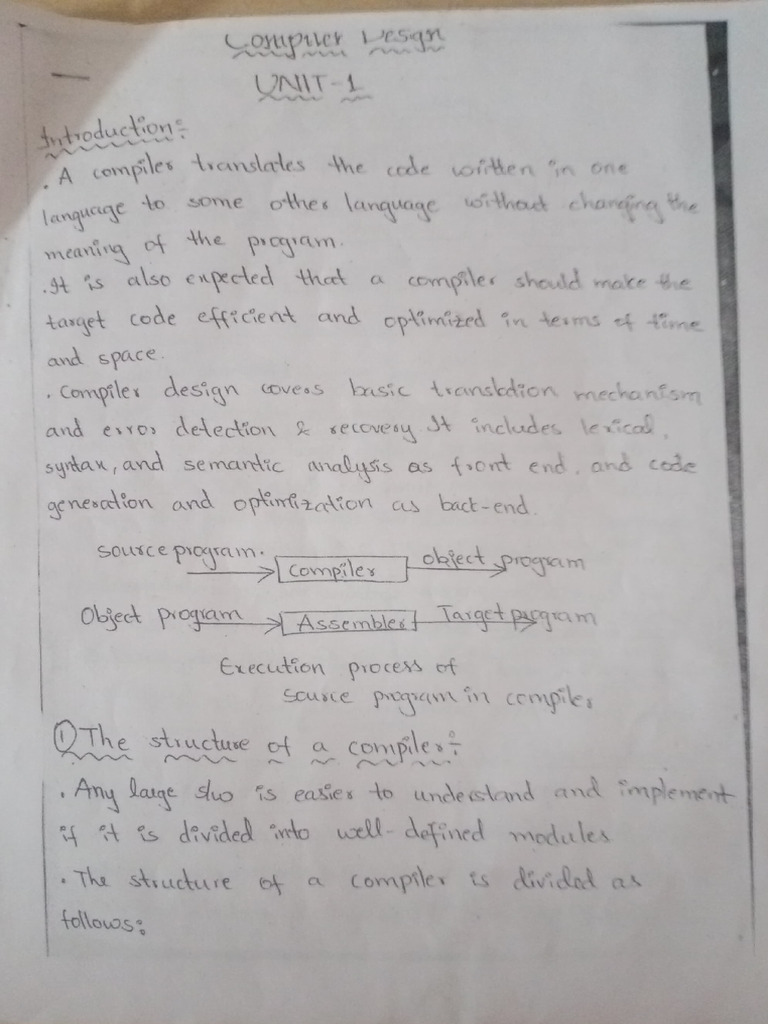 Compiler Design
UNIT-1
Introduction:-
. A compiler translates the code written in one
language to some other language without changing the
meaning of the program.
. It is also expected that a compiler should make the
target code efficient and optimized in terms of time
and space.
. Compiler design covers basic translation mechanism
and error detection & recovery It includes lexical,
syntax, and semantic analysis as front end, and code
generation and optimization as back-end.
source program. Compiler object program
Object program Assembler Target program
Execution process of
source program in compiler
① The structure of a compiler:-
. Any large s/w is easier to understand and implement
if it is divided into well-defined modules
. The structure of a compiler is divided as
follows: